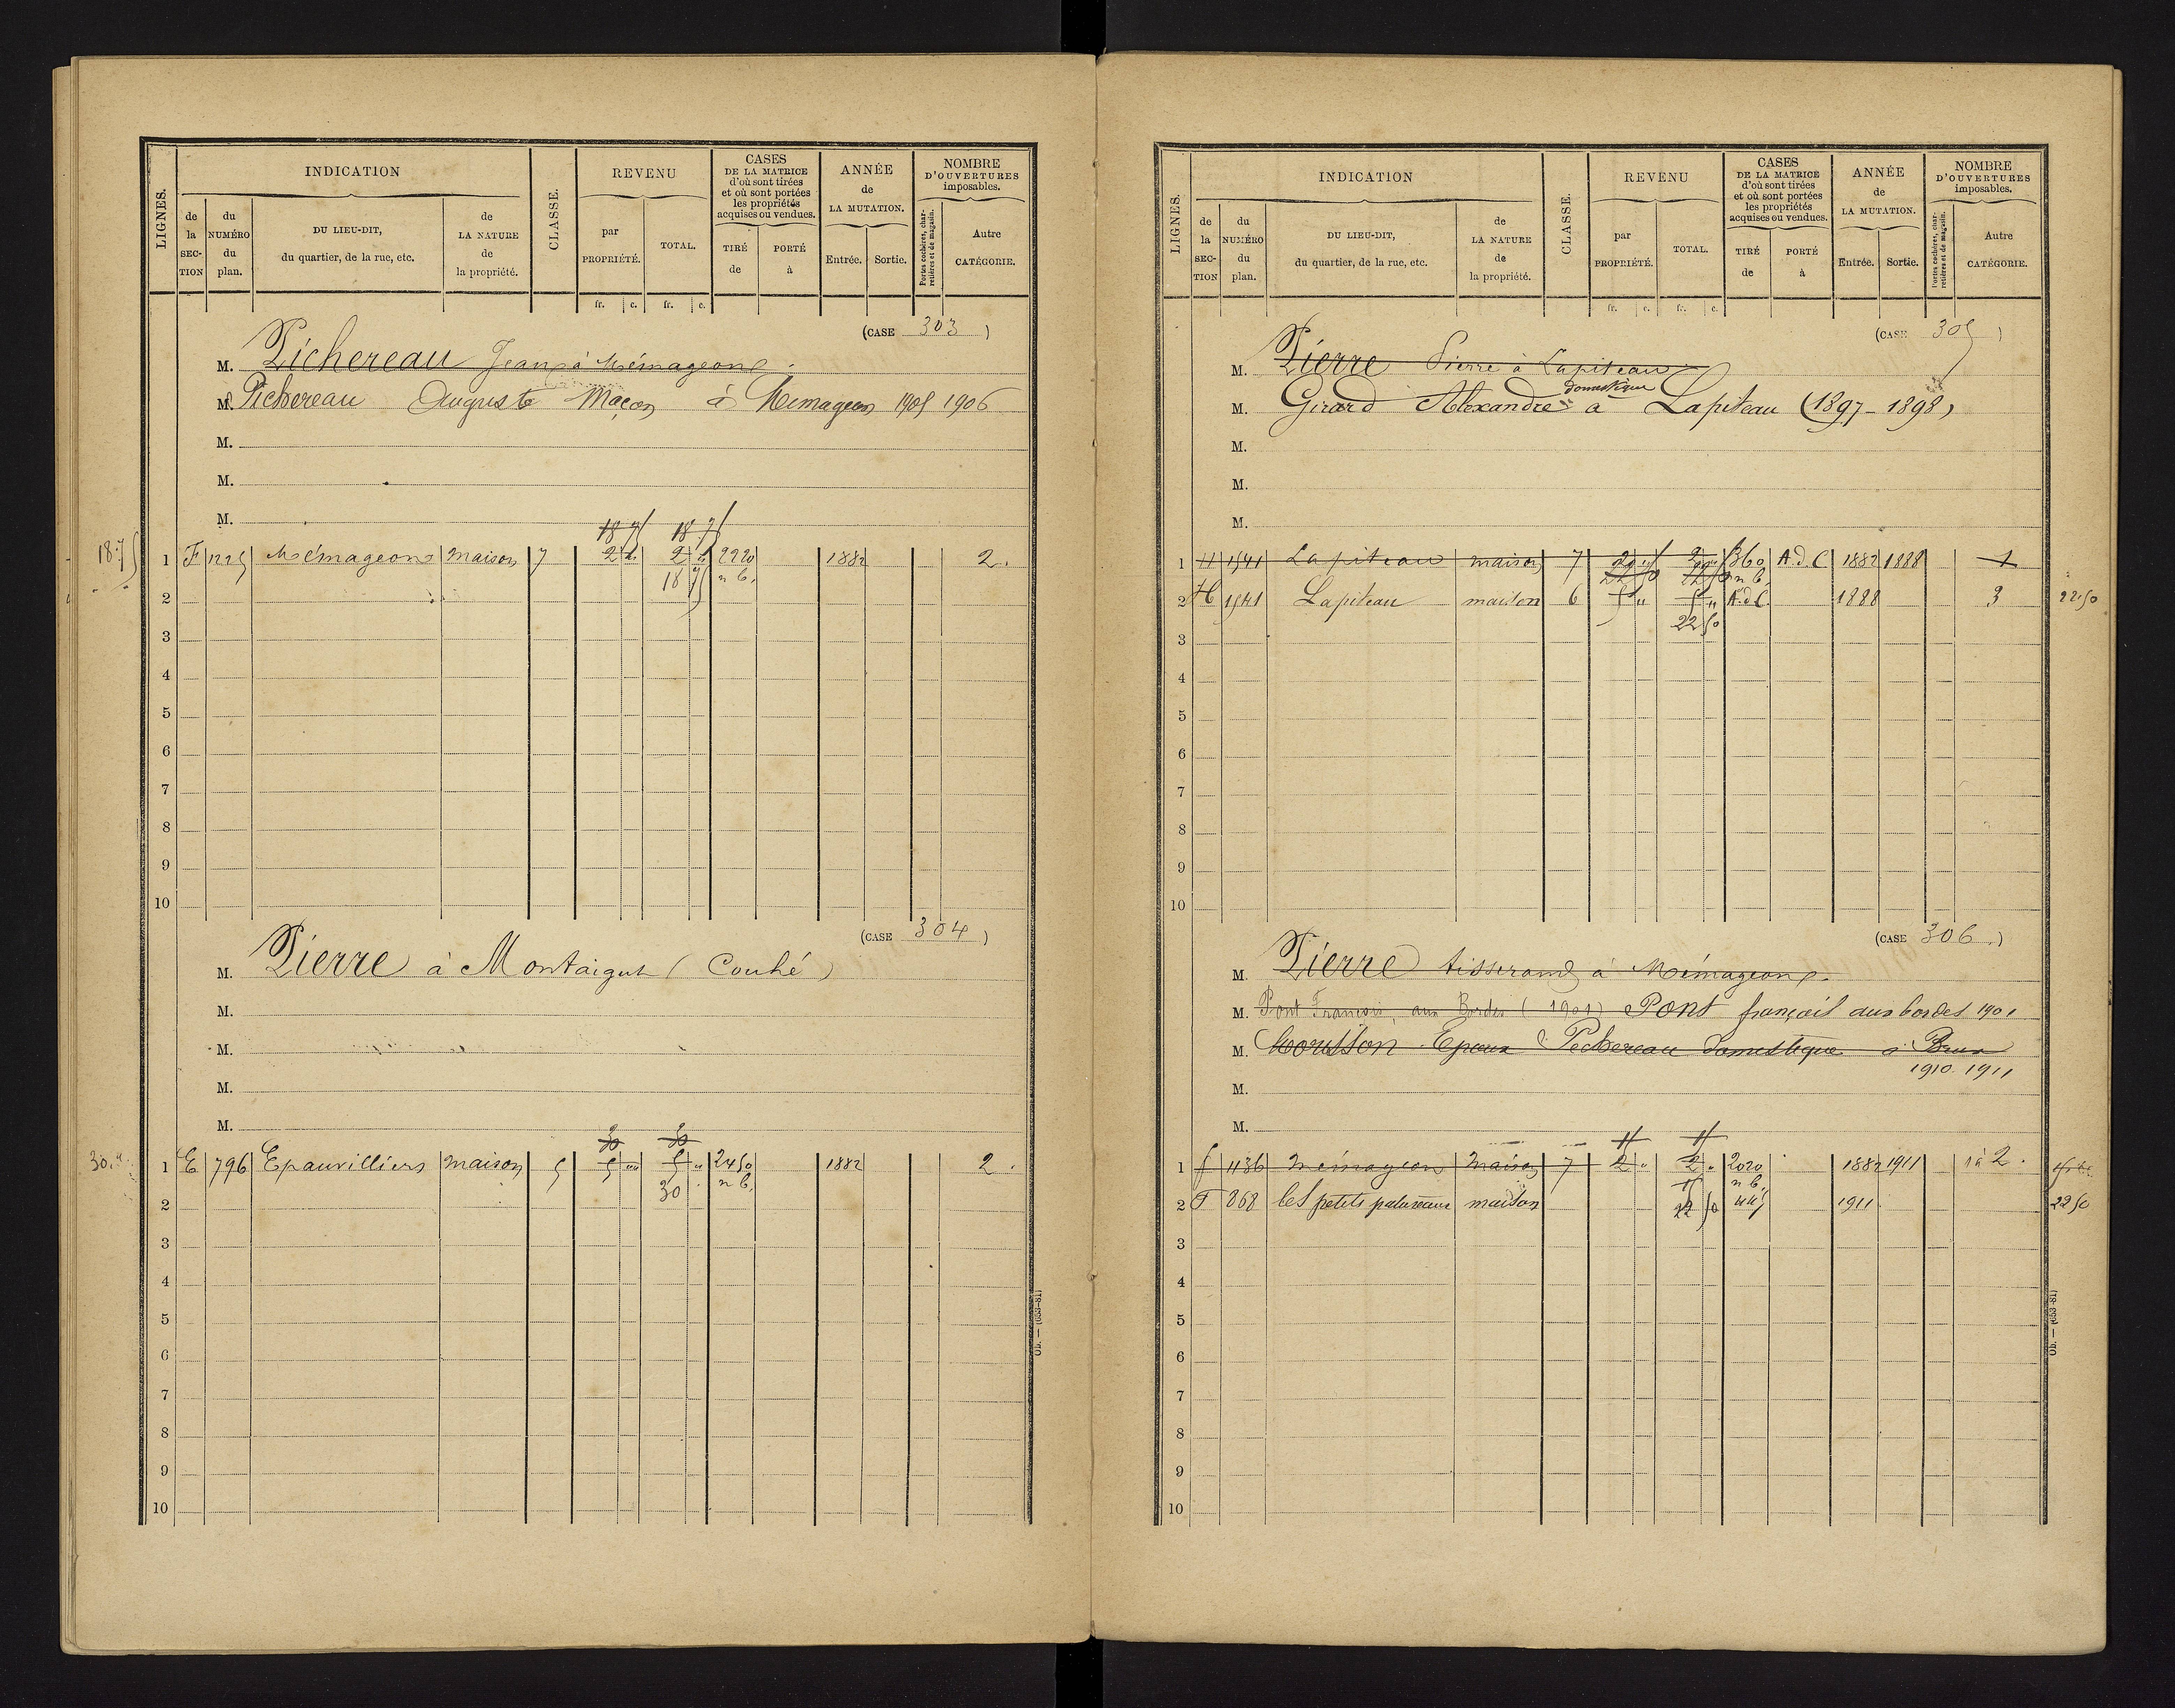 LIGNES.
INDICATION
de la SECTION
du NUMÉRO du plan.
DU LIEU-DIT, du quartier, de la rue, etc.
de LA NATURE de la propriété.
CLASSE.
REVENU
par PROPRIÉTÉ.
TOTAL.
fr. c. fr. c.
CASES DE LA MATRICE d'où sont tirées et où sont portées les propriétés acquises ou vendues.
TIRÉ de
PORTÉ à
ANNÉE de LA MUTATION.
Entrée. Sortie.
NOMBRE D'OUVERTURES imposables.
Portes cochères, charretières et de magasin.
Autre CATÉGORIE.
(CASE 303)
M. Pichereau Jean à Mémageons
M. Pichereau Auguste Maçon à Memageon 1905 1906
M.
M.
M.
18 75 18 75
18.75 1 F 1225 Mémageons maison 7 2 " 2 " 2220 1882 2.
18 75 n b.
2
3
4
5
6
7
8
9
10
(CASE 304)
M. Pierre à Montaigut (Couhé)
M.
M.
M.
M.
30 30
30." 1 E 796 Epauvilliers maison 5 5 " 5 " 2450 1882 2.
30 n b.
2
3
4
5
6
7
8
9
10
Ob. — (053-81)
LIGNES.
INDICATION
de la SECTION
du NUMÉRO du plan.
DU LIEU-DIT, du quartier, de la rue, etc.
de LA NATURE de la propriété.
CLASSE.
REVENU
par PROPRIÉTÉ.
TOTAL.
fr. c. fr. c.
CASES DE LA MATRICE d'où sont tirées et où sont portées les propriétés acquises ou vendues.
TIRÉ de
PORTÉ à
ANNÉE de LA MUTATION.
Entrée. Sortie.
NOMBRE D'OUVERTURES imposables.
Portes cochères, charretières et de magasin.
Autre CATÉGORIE.
(CASE 305)
M. Pierre Pierre à Lapiteau
domestique
M. Girard Alexandre à Lapiteau (1897-1898)
M.
M.
M.
1 H 1541 Lapiteau maison 7 360 A.d.C 1882 1888 1
22 50 22 50 n b.
2 H 1541 Lapiteau maison 6 5 " 5 " A.d.C. 1888 3 22.50
22 50
3
4
5
6
7
8
9
10
(CASE 306)
M. Pierre tisserand à Mémageons.
M. Pont François, aux Bordes (1901) Pont françois aux bordes 1901
M. Epoux Pichereau domestique à Brux
1910. 1911
M.
M.
1 f 1436 Mémageon Maison 7 2 " 2 " 2020 1882 1911 1 à 2.
n b.
2 F 868 les petits patureaux maison 22 50 445 1911 22 50
3
4
5
6
7
8
9
10
Ob. — (053-81)